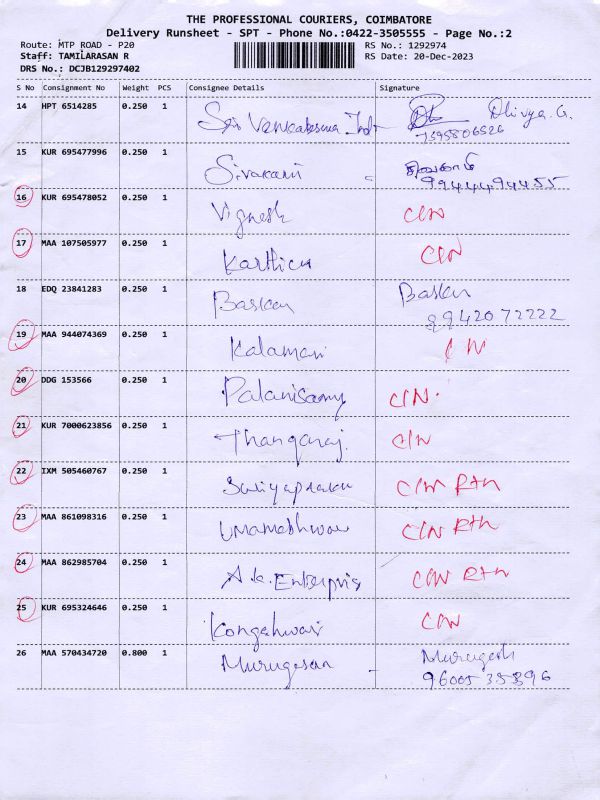 THE PROFESSIONAL COURIERS, COIMBATORE
Delivery Runsheet - SPT - Phone No.:0422-3505555 - Page No.:2
Route: MTP ROAD - P20 RS No.: 1292974
Staff: TAMILARASAN R RS Date: 20-Dec-2023
DRS No.: DCJB129297402
S No Consignment No Weight PCS Consignee Details Signature
14 HPT 6514285 0.250 1 Sri Venkateswa Dhivya. G.
15 KUR 695477996 0.250 1 Sivakami சிவகாமி
9944494455
16 KUR 695478052 0.250 1 Vignesh C/N
17 MAA 107505977 0.250 1 Karthica C/N
18 EDQ 23841283 0.250 1 Baskar Baskar
9942072222
19 MAA 944074369 0.250 1 Kalamani
20 DDG 153566 0.250 1 Palanisamy C/N.
21 KUR 7000623856 0.250 1 Thangaraj. C/N
22 IXM 505460767 0.250 1 C/N Rtn
23 MAA 861098316 0.250 1 Umameshwari C/N Rtn
24 MAA 862985704 0.250 1 A.k. Enterpris C/N Rtn
25 KUR 695324646 0.250 1 Kongeshwari C/N
26 MAA 570434720 0.800 1 Murugesan Murugesh